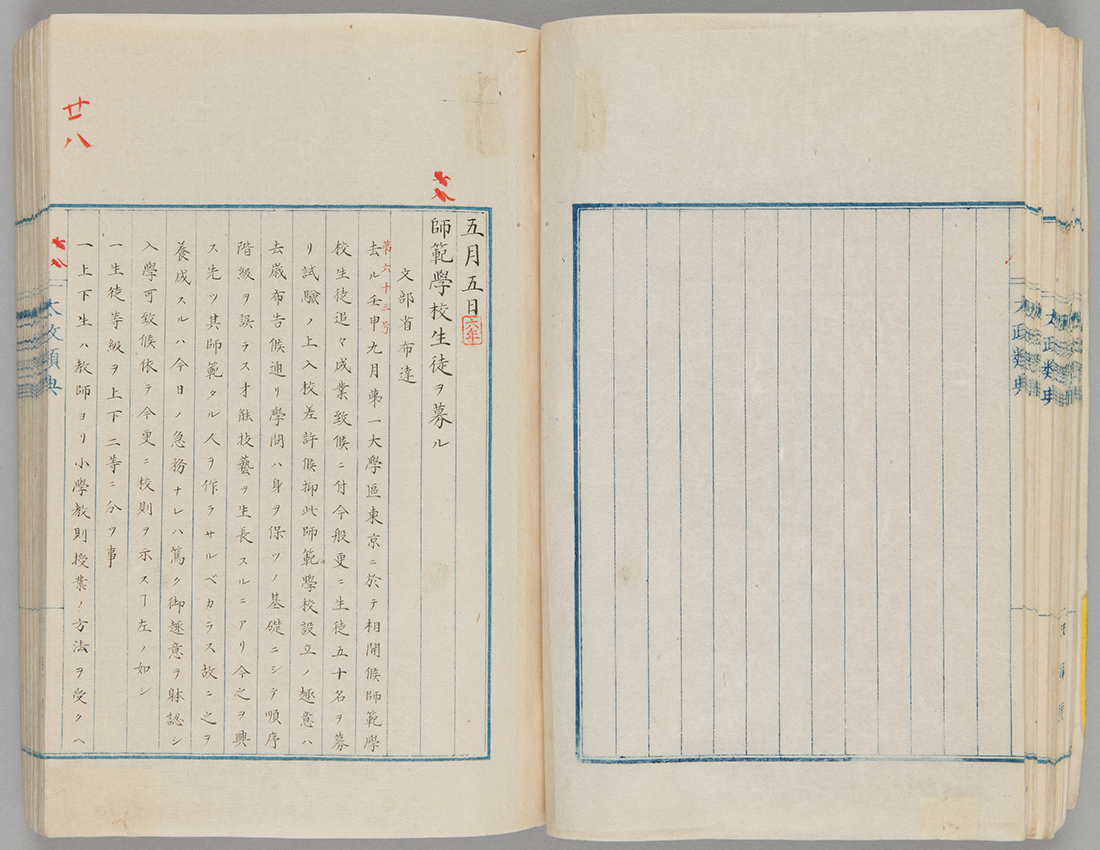 廿八
五月五日 六年
師範學校生徒ヲ募ル
文部省布達
第六十三号
去ル壬申九月第一大學區東京ニ於テ相開候師範學
校生徒追々成業致候ニ付今般更ニ生徒五十名ヲ募
リ試驗ノ上入校差許候抑此師範學校設立ノ趣意ハ
去歳布告候通リ學問ハ身ヲ保ツノ基礎ニシテ順序
階級ヲ誤ラス才能技藝ヲ生長スルニアリ今之ヲ興
ス先ツ其師範タル人ヲ作ラサルベカラス故ニ之ヲ
養成スルハ今日ノ急務ナレハ篤ク御趣意ヲ躰認シ
入學可致候依テ今更ニ校則ヲ示スヿ左ノ如シ
一生徒等級ヲ上下二等ニ分ツ事
一上下生ハ教師ヨリ小學教則授業ノ方法ヲ受クヘ
太政類典
太政類典
太政類典